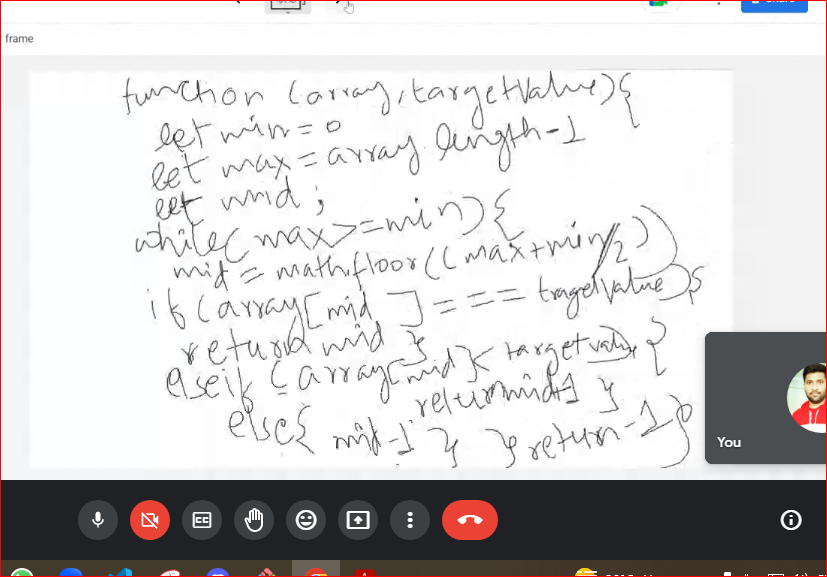 frame
function (array, targetValue){
let min = 0
let max = array.length-1
let mid;
while(max>=min){
mid = math.floor((max+min)/2)
if (array[mid ] === tragetvalue){
return mid }
elseif (array[mid]< targetvalue {
return mid+1 }
else{ mid-1 } } return-1}
You
CC